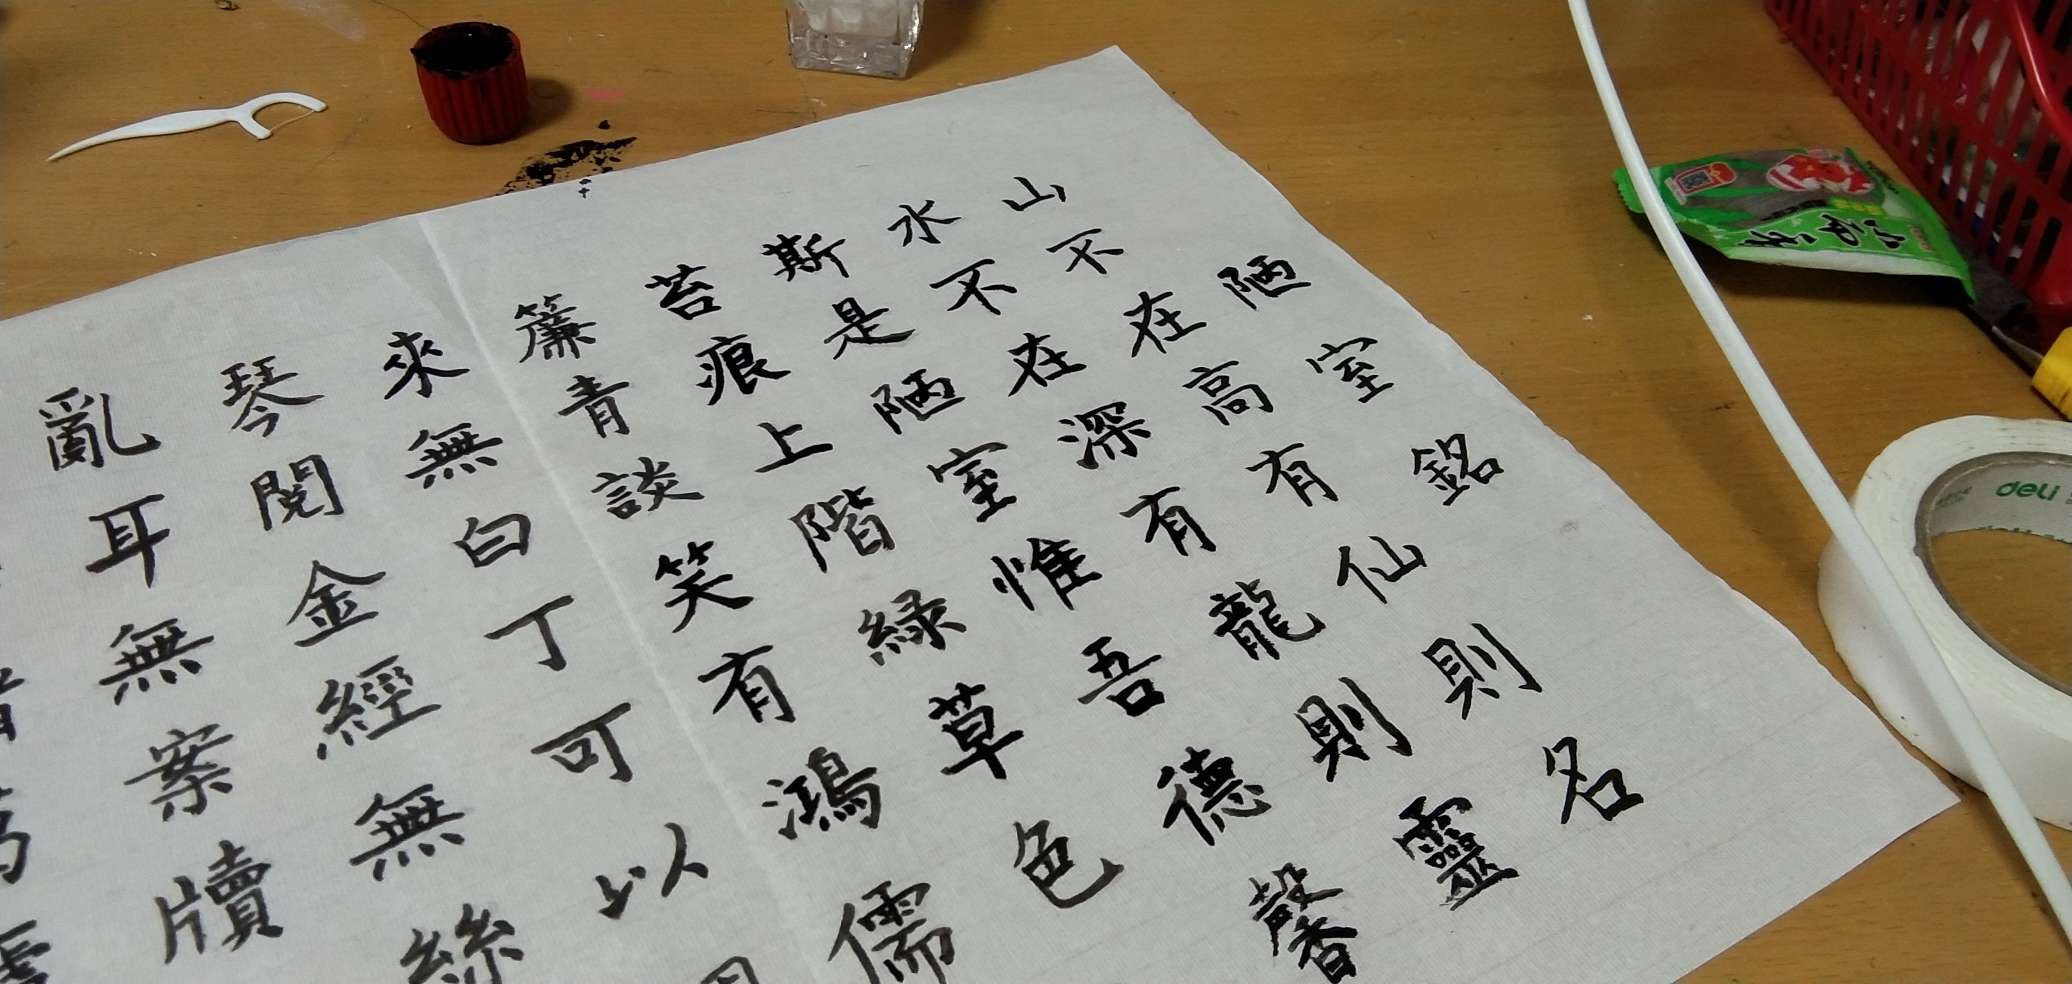 陋室銘
山不在高有仙則名
水不在深有龍則靈
斯是陋室惟吾德馨
苔痕上階綠草色
簾青談笑有鴻儒
來無白丁可以
琴閱金經無絲
亂耳無案牘
deli